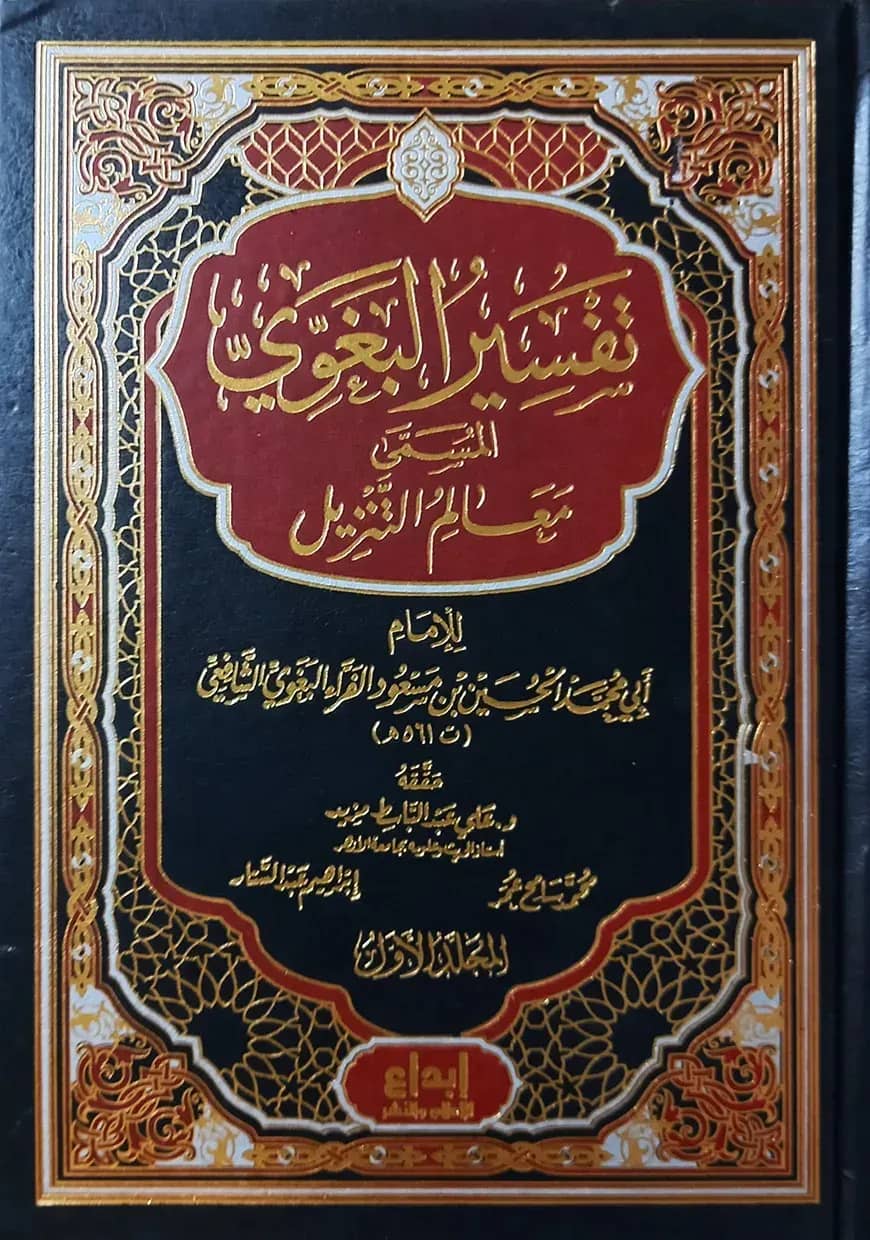 تَفْسِيرُ البَغَوِيِّ
المُسَمَّى
مَعَالِمُ التَّنْزِيلِ
لِلْإِمَامِ
أَبِي مُحَمَّد الحُسَيْنِ بْنِ مَسْعُود الفَرَّاء البَغَوِيّ الشَّافِعِيّ
(ت ٥١٦ هـ)
حَقَّقَهُ
د. علي عبد الباسط مزيد
أستاذ الحديث وعلومه بجامعة الأزهر
محمد سامح عمر
إبراهيم عبد الستار
المجلد الأول
إبداع
للإعلام والنشر